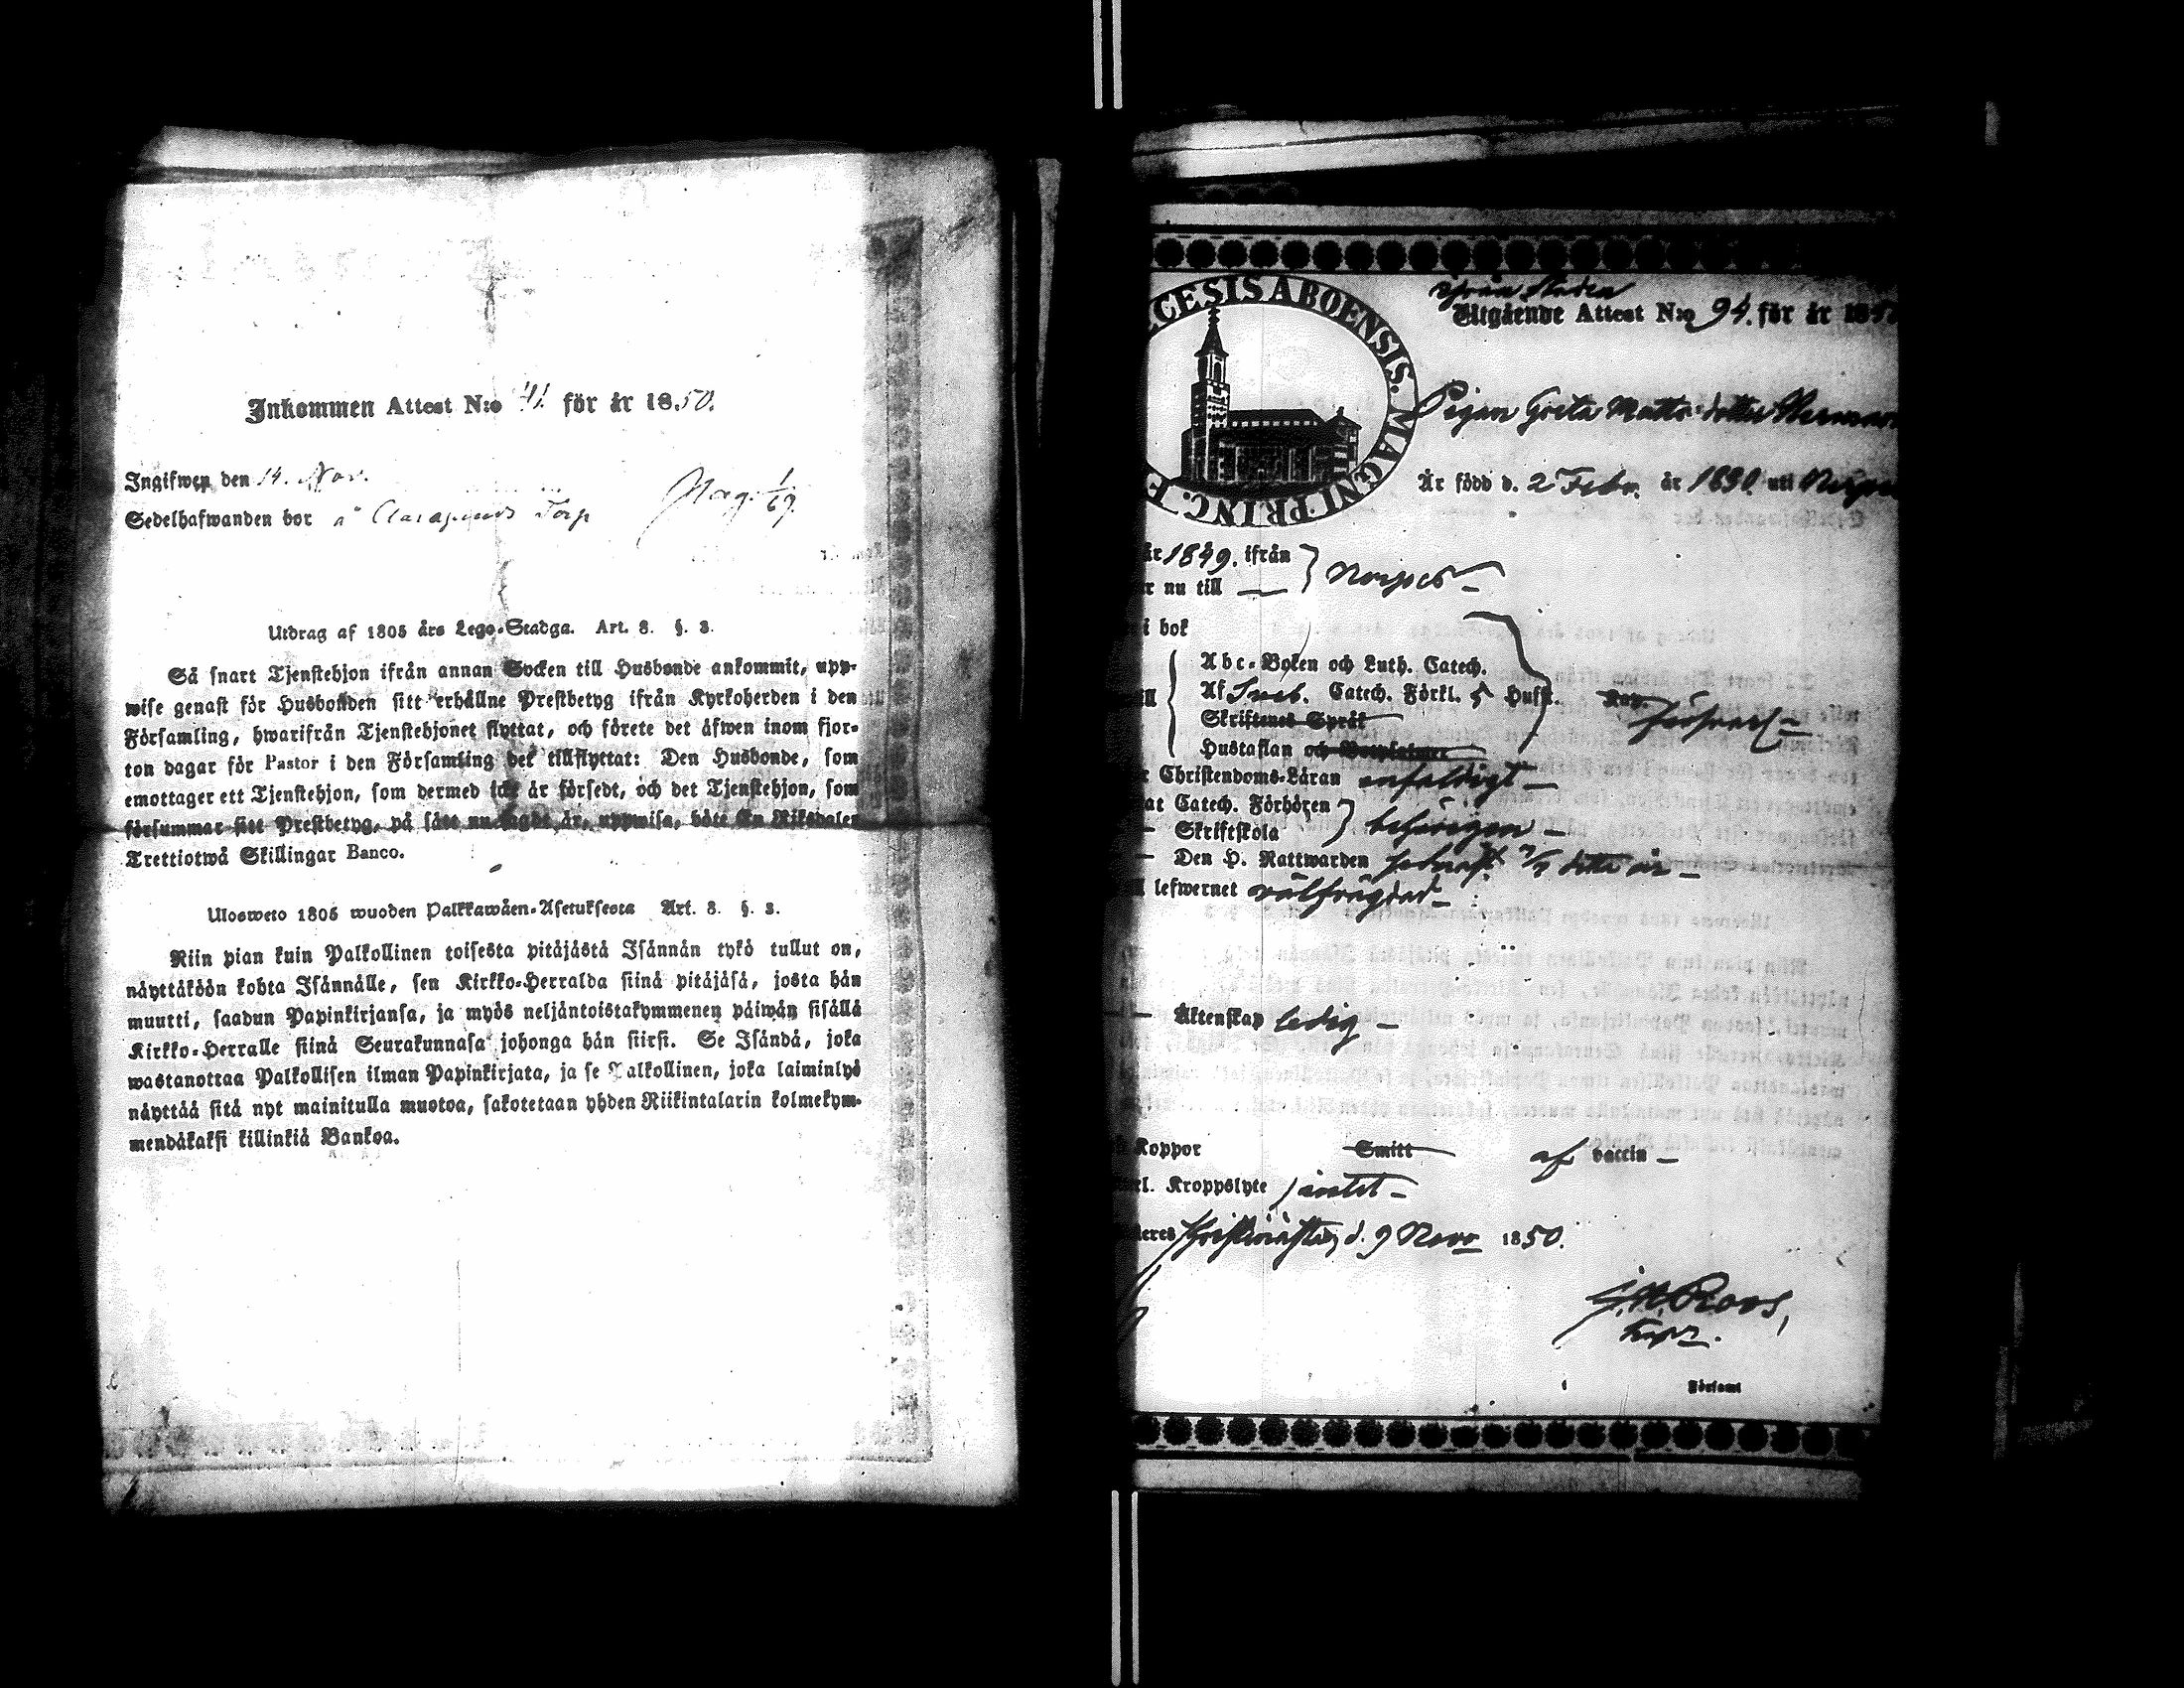 Inkommen Attest N:o 41. för år 1850.
Ingifwen den 14. Nov.
Sedelhafwanden bor å Torp
Utdrag af 1805 års Lego-Stadga. Art. 8. §. 3.
Så snart Tjenstehjon ifrån annan Socken till Husbonde ankommit, upp-
wise genast för Husbonden sitt erhållne Prestbetyg ifrån Kyrkoherden i den
Församling, hwarifrån Tjenstehjonet flyttat, och förete det äfwen inom fjor-
ton dagar för Pastor i den Församling det tillflyttat: Den Husbonde, som
emottager ett Tjenstehjon, som dermed icke är försedt, och det Tjenstehjon, som
försummar sitt Prestbetyg, på sätt nu sagdt är, uppwisa, böte En Riksdaler
Trettiotwå Skillingar Banco.
Ulosweto 1805 wuoden Palkkawäen-Asetuksesta Art. 8. §. 3.
Niin pian kuin Palkollinen toisesta pitäjästä Isännän tykö tullut on,
näyttäköön kohta Isännälle, sen Kirkko-Herralda siinä pitäjäsä, josta hän
muutti, saadun Papinkirjansa, ja myös neljäntoistakymmenen päiwän sisällä
Kirkko-Herralle siinä Seurakunnasa johonga hän siirsi. Se Isändä, joka
wastanottaa Palkollisen ilman Papinkirjata, ja se Palkollinen, joka laiminlyö
näyttää sitä nyt mainitulla muotoa, sakotetaan yhden Riikintalarin kolmekym-
mendäkaksi killinkiä Bankoa.
CESIS ABOENSIS. MAGNI PRINC. F
ifrån Staden
Utgående Attest N:o 94. för år 18
Pigan Greta Mattsdotter
Är född d. 2 Febr. år 1830. uti
år 1849. ifrån
r nu till — Nerpes
i bok
Abc-Boken och Luth. Catech.
Af Sveb. Catech. Förkl. 5 Hufst.
Skriftenes Språk
Hustaflan och
Christendoms-Läran enfaldigt —
at Catech. Förhören
— Skriftskola behörigen —
— Den H. Nattwarden detta år —
lefwernet välfrägdad —
— Äktenskap ledig —
Koppor Smitt af vaccin —
rl. Kroppslyte intet —
eres d. 9 Nov. 1850.
J. H. Roos,
Församl